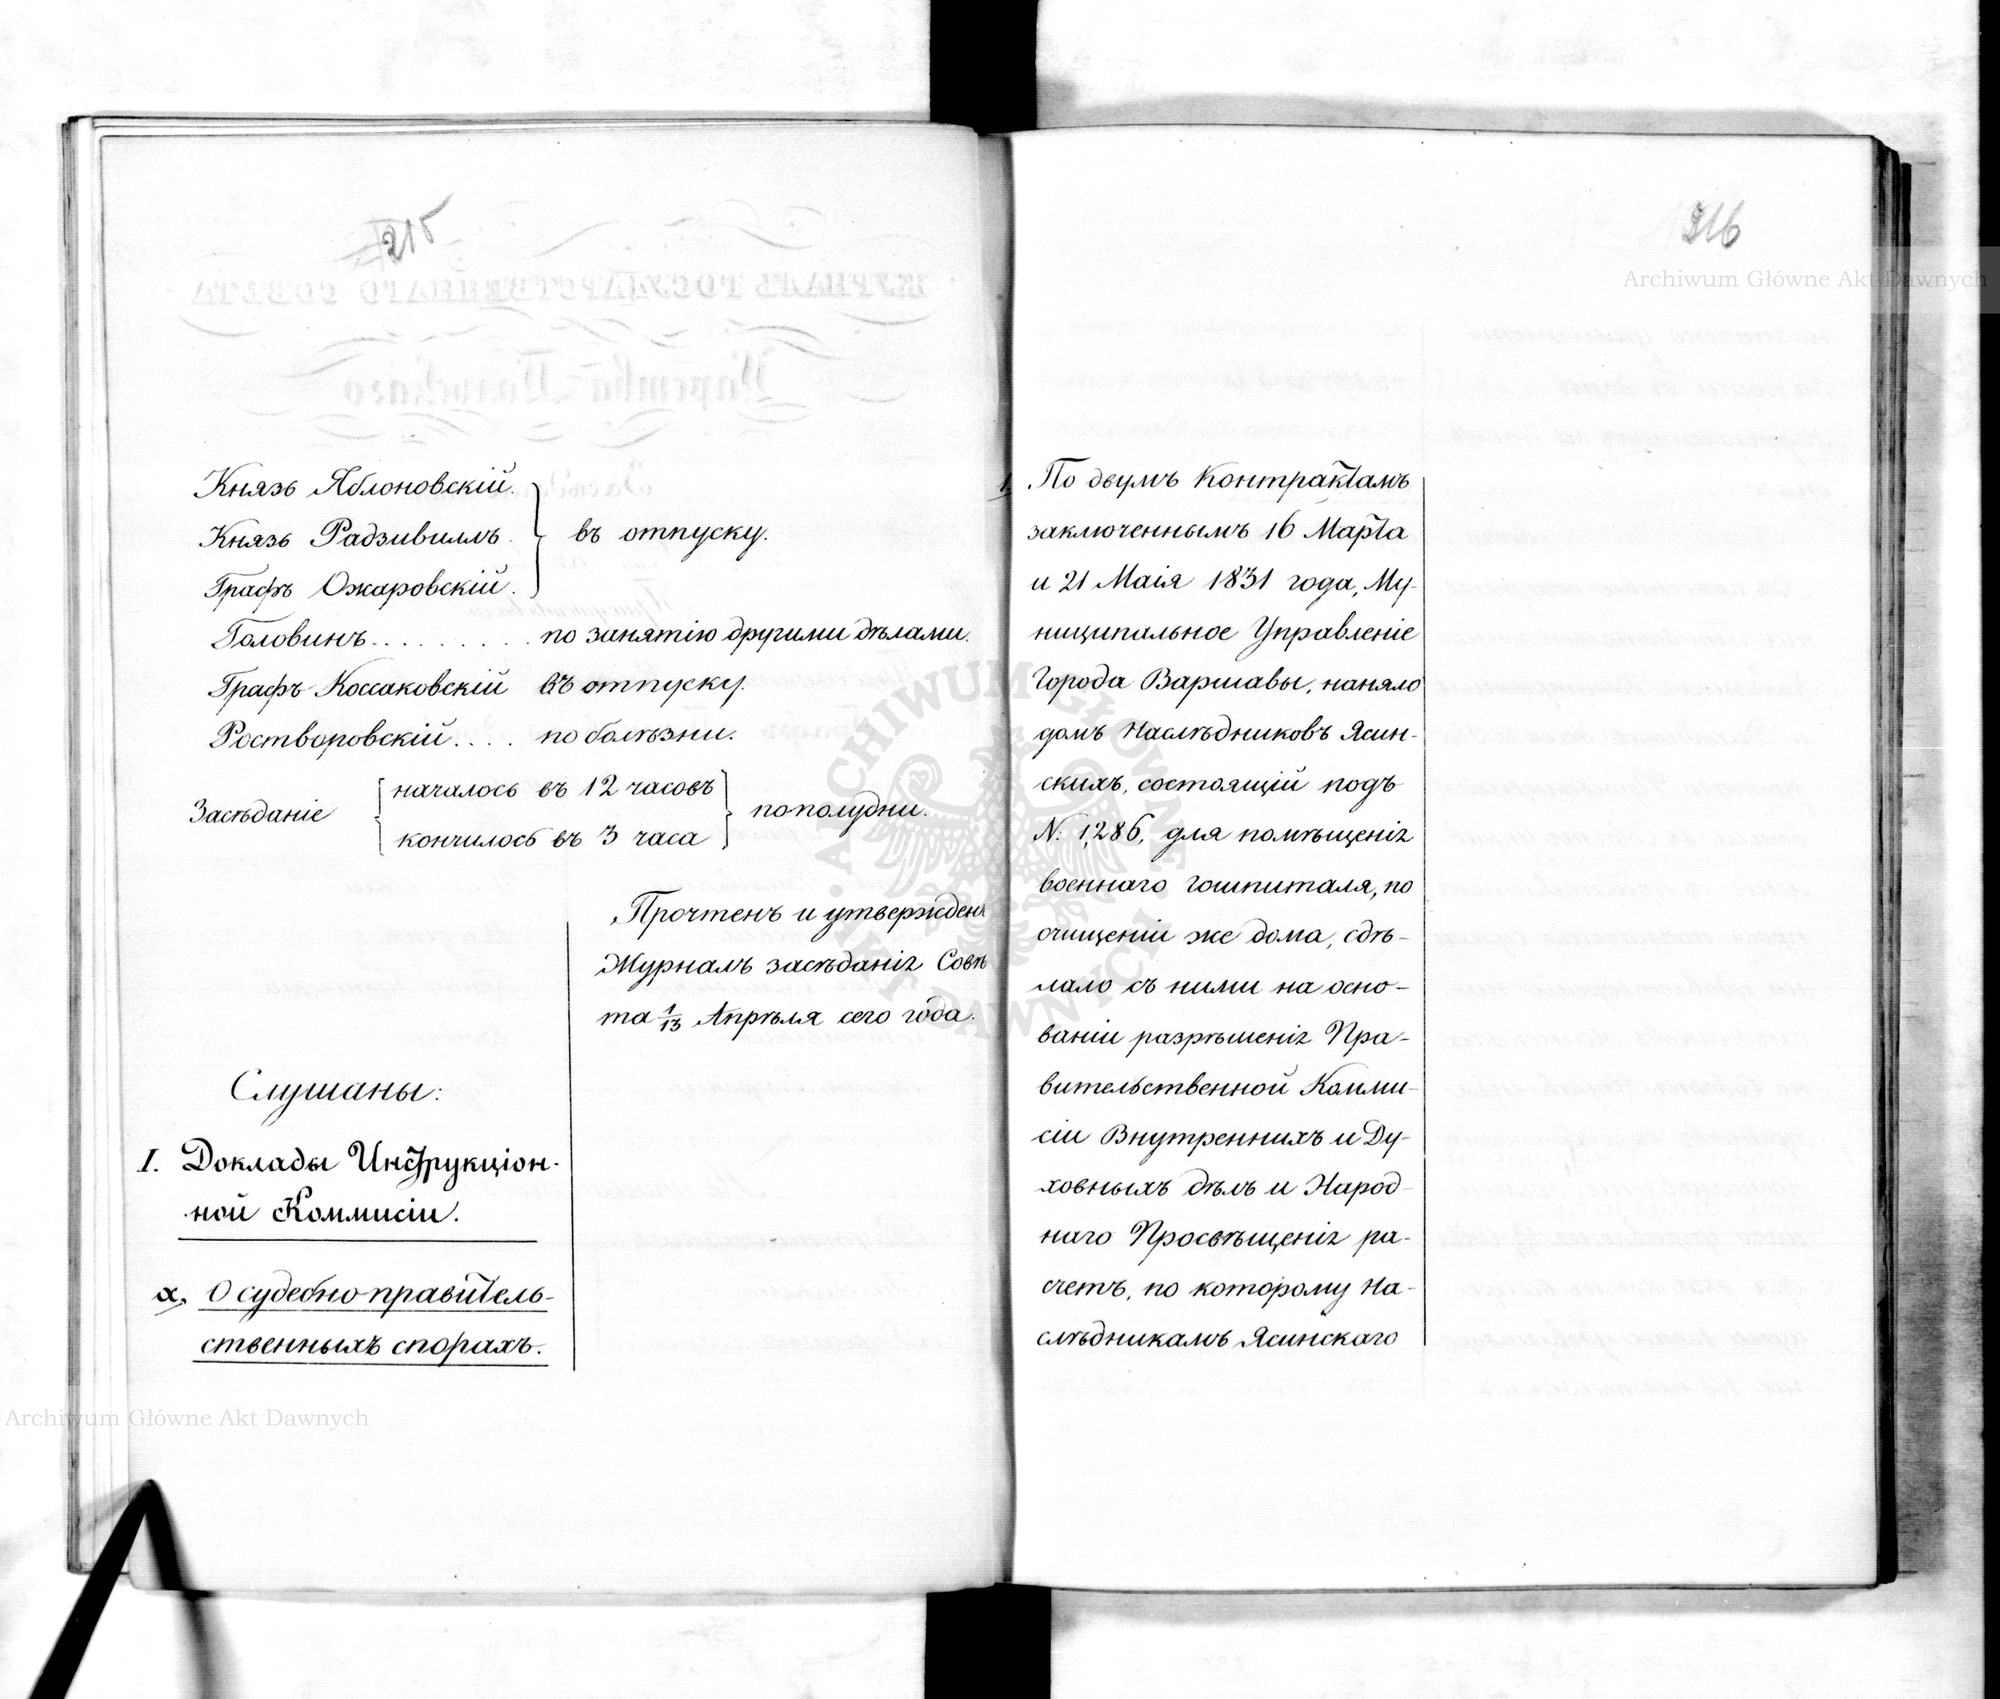 215
Князь Яблоновскій.
Князь Радзивиллъ.
Графъ Ожаровскій.
въ отпуску.
Головинъ . . . . . . . . . по занятію другими дѣлами.
Графъ Коссаковскій въ отпуску.
Ростворовскій . . . . по болѣзни.
Засѣданіе
началось въ 12 часовъ
кончилось въ 3 часа
пополудни.
Прочтенъ и утвержденъ
Журналъ засѣданія Совѣ
та 1/13 Апрѣля сего года.
Слушаны:
I. Доклады Инструкціон-
ной Коммисіи.
а, О судебно-правитель-
ственныхъ спорахъ.
Archiwum Główne Akt Dawnych
216
Archiwum Główne Akt Dawnych
1, По двумъ Контрактамъ
заключеннымъ 16 Марта
и 21 Маія 1831 года, Му-
ниципальное Управленіе
Города Варшавы, наняло
домъ Наслѣдниковъ Ясин-
скихъ, состоящій подъ
N. 1,286, для помѣщенія
военнаго гошпиталя, по
очищеніи же дома, сдѣ-
лало съ ними на осно-
ваніи разрѣшенія Пра-
вительственной Комми-
сіи Внутреннихъ и Ду-
ховныхъ дѣлъ и Народ-
наго Просвѣщенія ра-
счетъ, по которому На-
слѣдникамъ Ясинскаго
ARCHIWUM GŁÓWNE AKT DAWNYCH